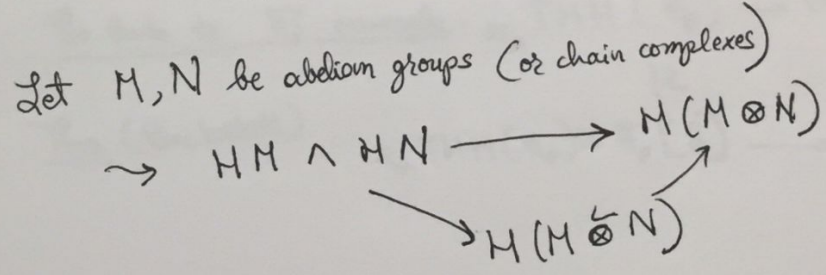 Let M, N be abelian groups (or chain complexes)
⇝ HM ∧ HN → H(M ⊗ N)
↘ H(M ⊗ᴸ N) ↗